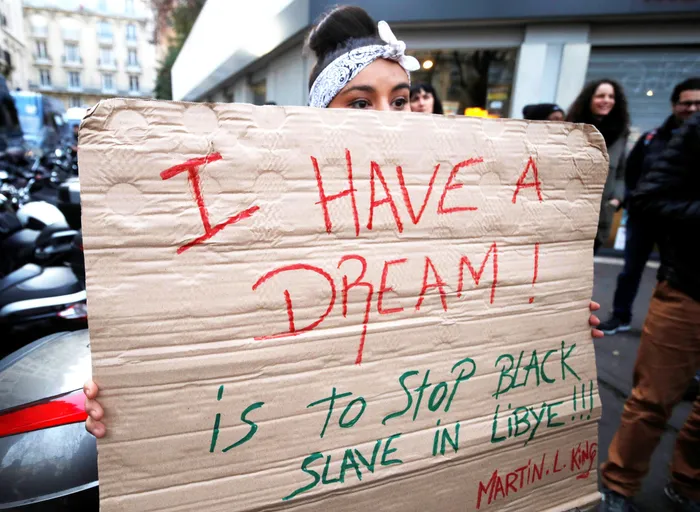 I HAVE A
DREAM!
is TO STOP BLACK
SLAVE iN LiBYE!!!
MARTIN. L. KING